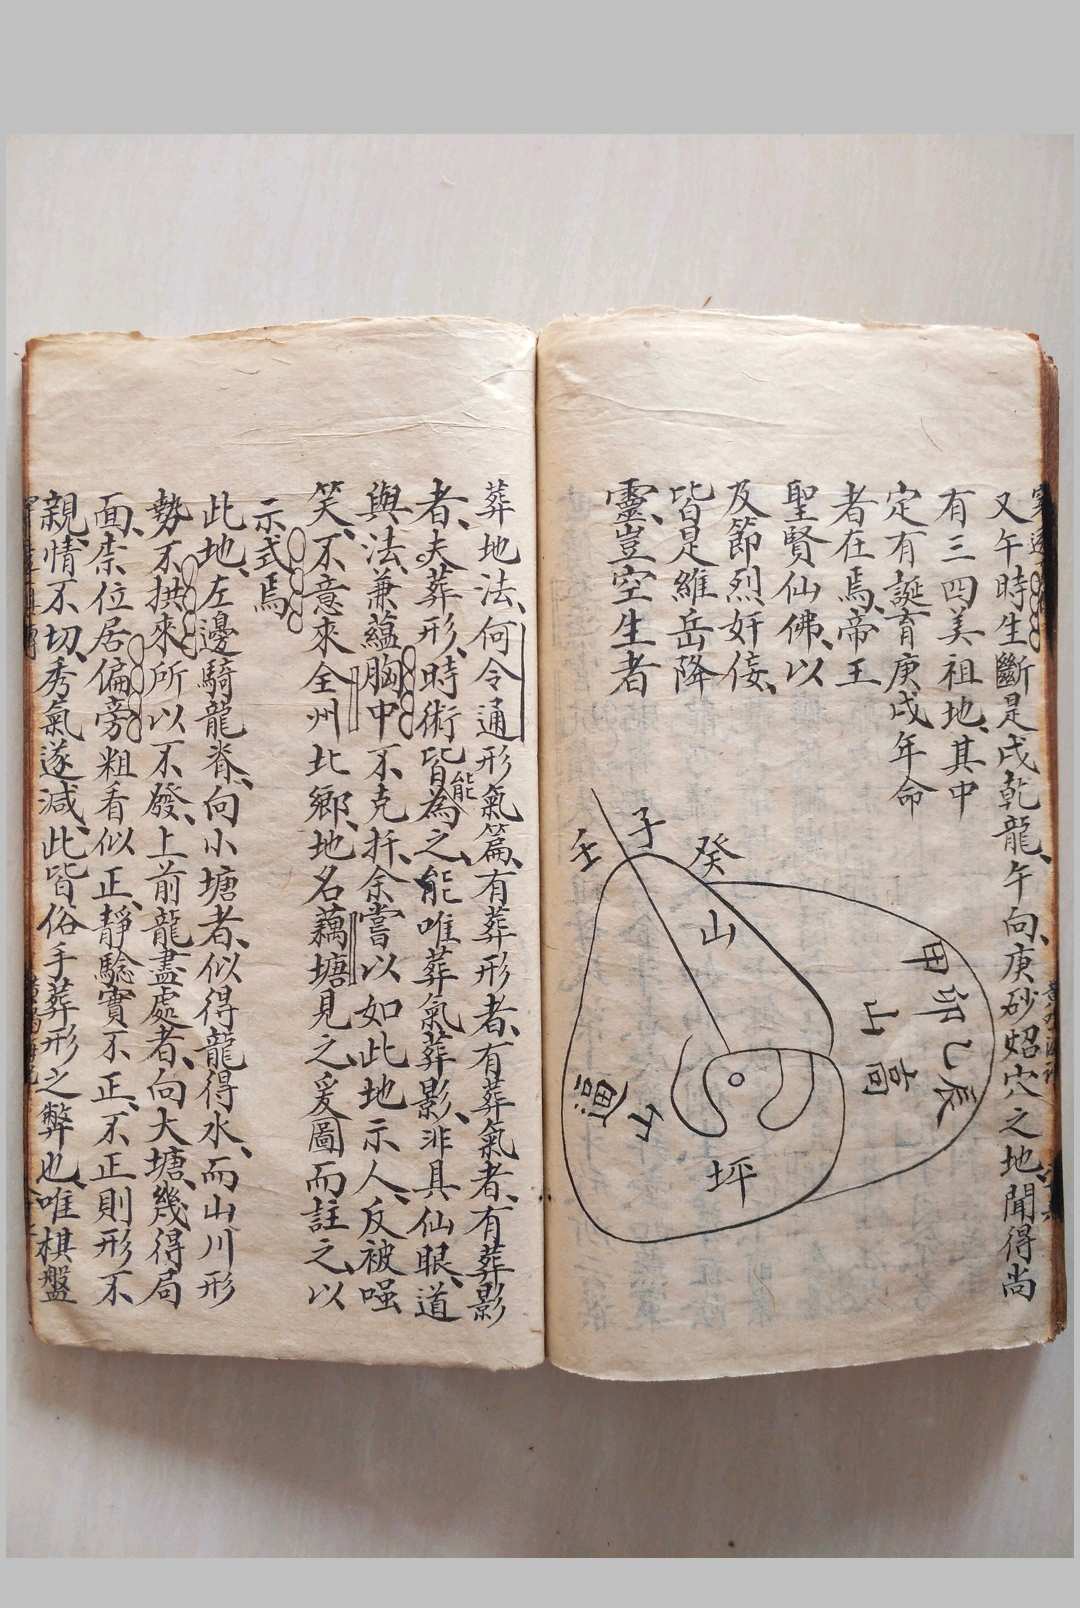 又午時生斷是戌乾龍、午向、庚砂、炤穴之地、聞得尚
有三四美祖地、其中
定有誕育庚戌年命
者在焉、帝王
聖賢仙佛、以
及節烈奸佞、
皆是維岳降
靈、豈空生者
壬
子
癸
山
甲卯乙辰
山高
坪
葬地法、何令通形氣篇、有葬形者、有葬氣者、有葬影
者、夫葬形、時術皆能為之、能唯葬氣葬影、非具仙眼、道
與法、兼蘊胸中、不克拆、余嘗以如此地示人、反被嗤
笑、不意來全州北鄉、地名藕塘見之、爰圖而註之、以
示式焉、
此地、左邊騎龍脊、向小塘者、似得龍得水、而山川形
勢、不拱來、所以不發、上前龍盡處者、向大塘、幾得局
面、柰位居偏旁、粗看似正、靜驗實不正、不正則形不
親、情不切、秀氣遂減、此皆俗手葬形之弊也、唯棋盤